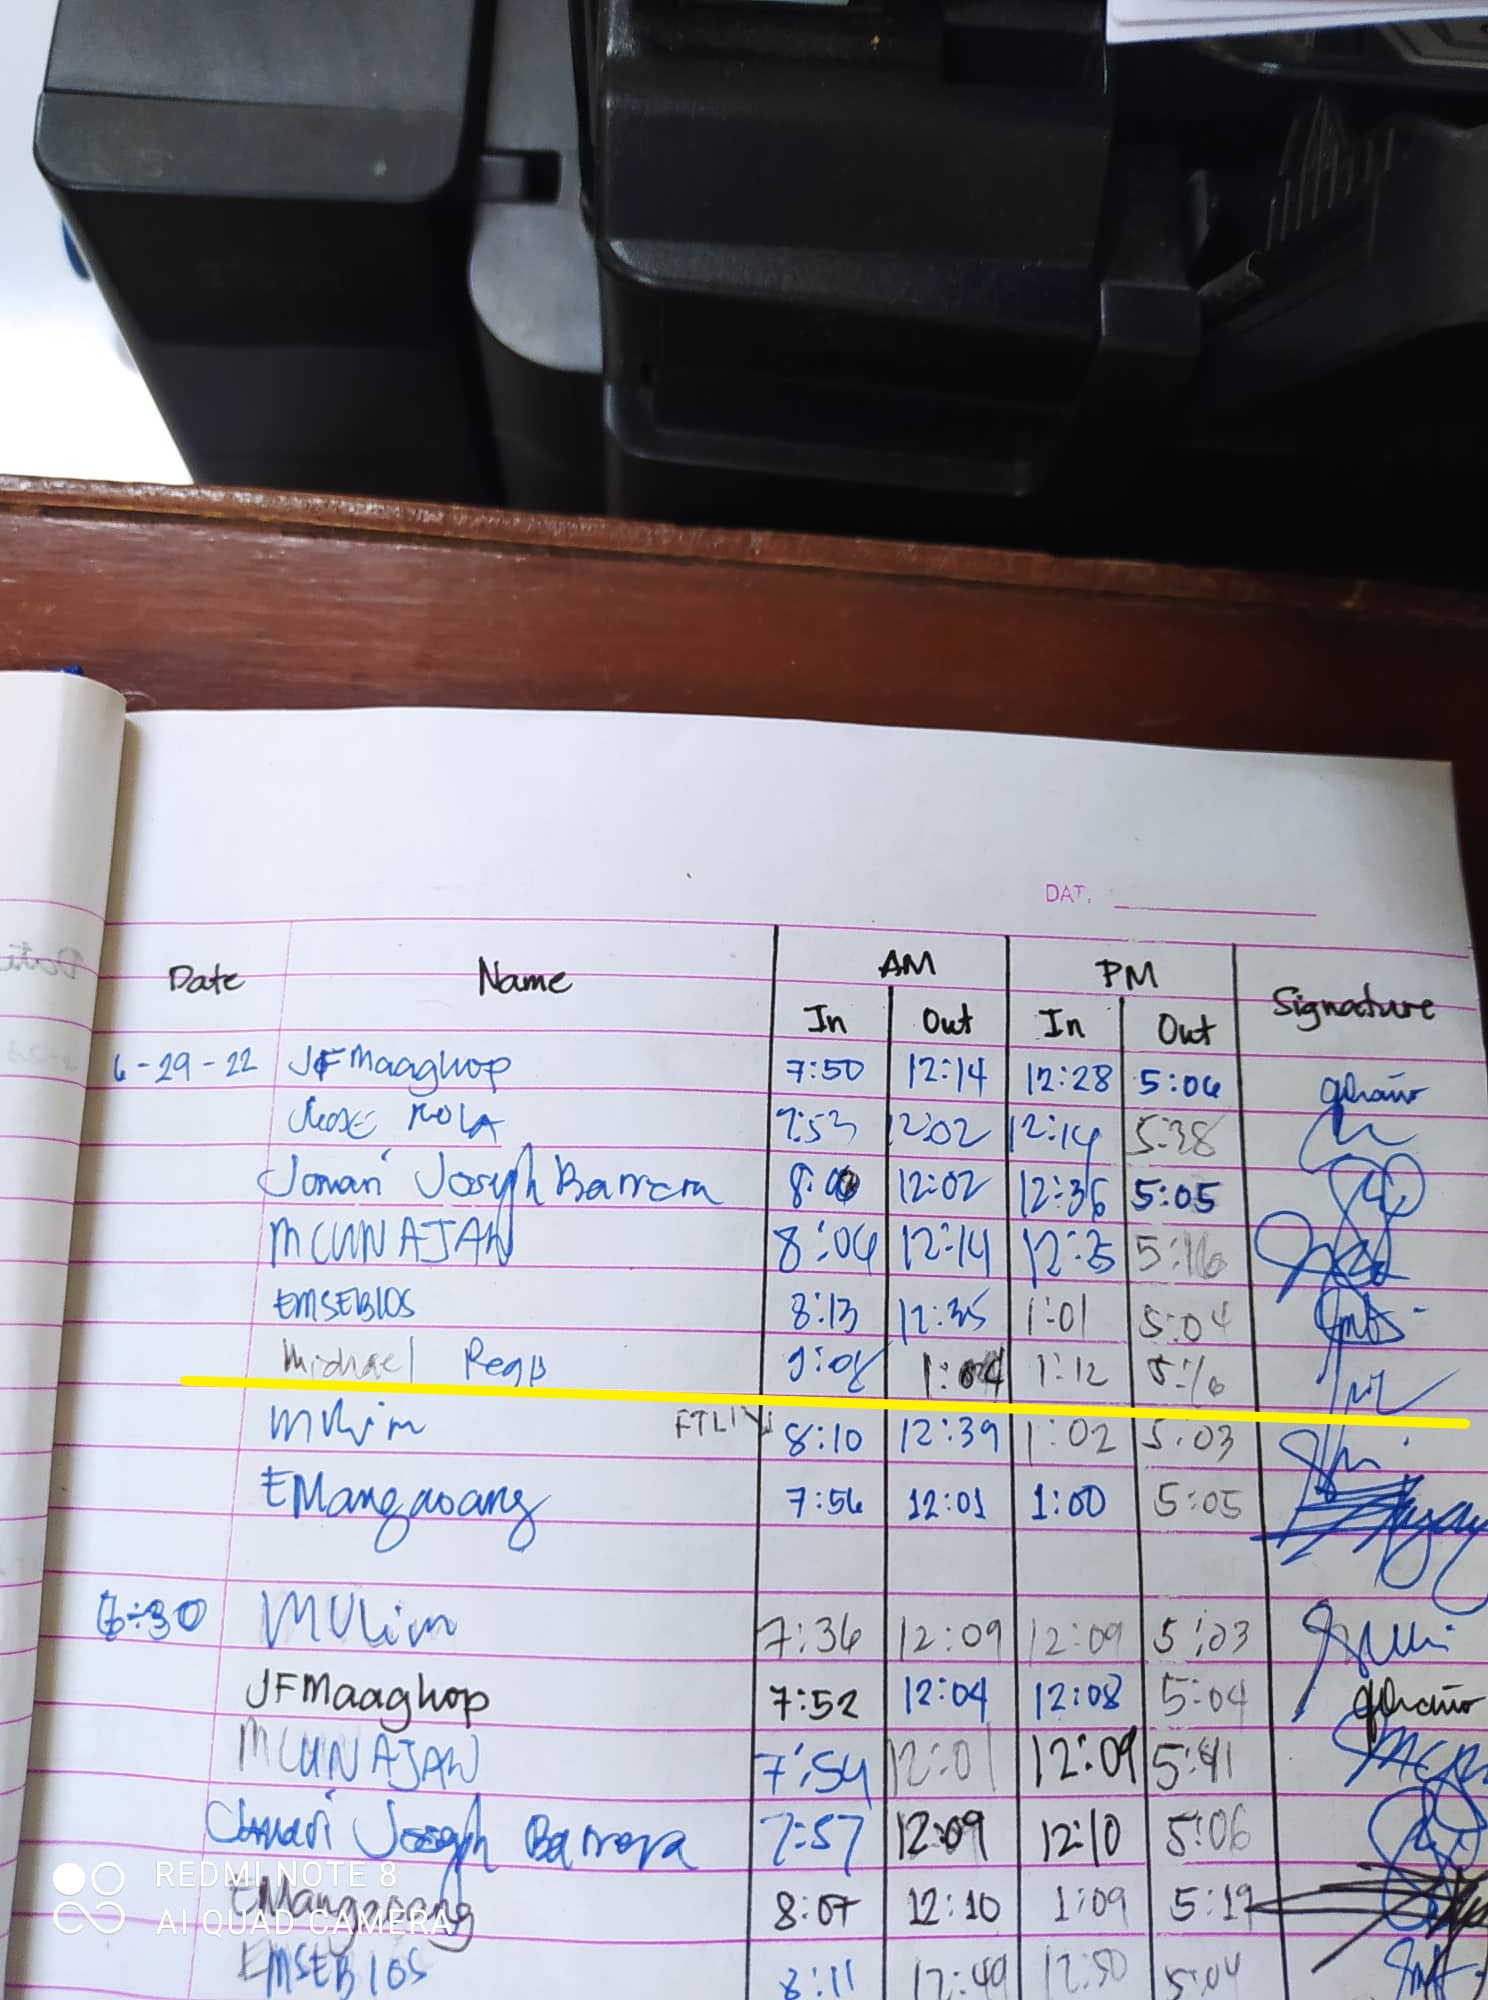 DAT.
Date Name AM PM Signature
In Out In Out
6-29-22 JFMaaghop 7:50 12:14 12:28 5:06
7:53 12:02 12:14 5:38
Jomari Joseph Barrera 8:00 12:02 12:36 5:05
MCUNAJAN 8:04 12:14 12:25 5:16
EMSEBIOS 8:13 12:35 1:01 5:04
Michael 9:08 1:04 1:12 5:16
MVLim 8:10 12:39 1:02 5:03
EMangaoang 7:56 12:01 1:00 5:05
6-30 MVLim 7:36 12:09 12:09 5:03
JFMaaghop 7:52 12:04 12:08 5:04
MCUNAJAN 7:54 12:01 12:09 5:41
Jomari Joseph Barrera 7:57 12:09 12:10 5:06
EMangaoang 8:07 12:10 1:09 5:19
EMSEBIOS 8:11 12:49 12:50 5:04
REDMI NOTE 8
AI QUAD CAMERA